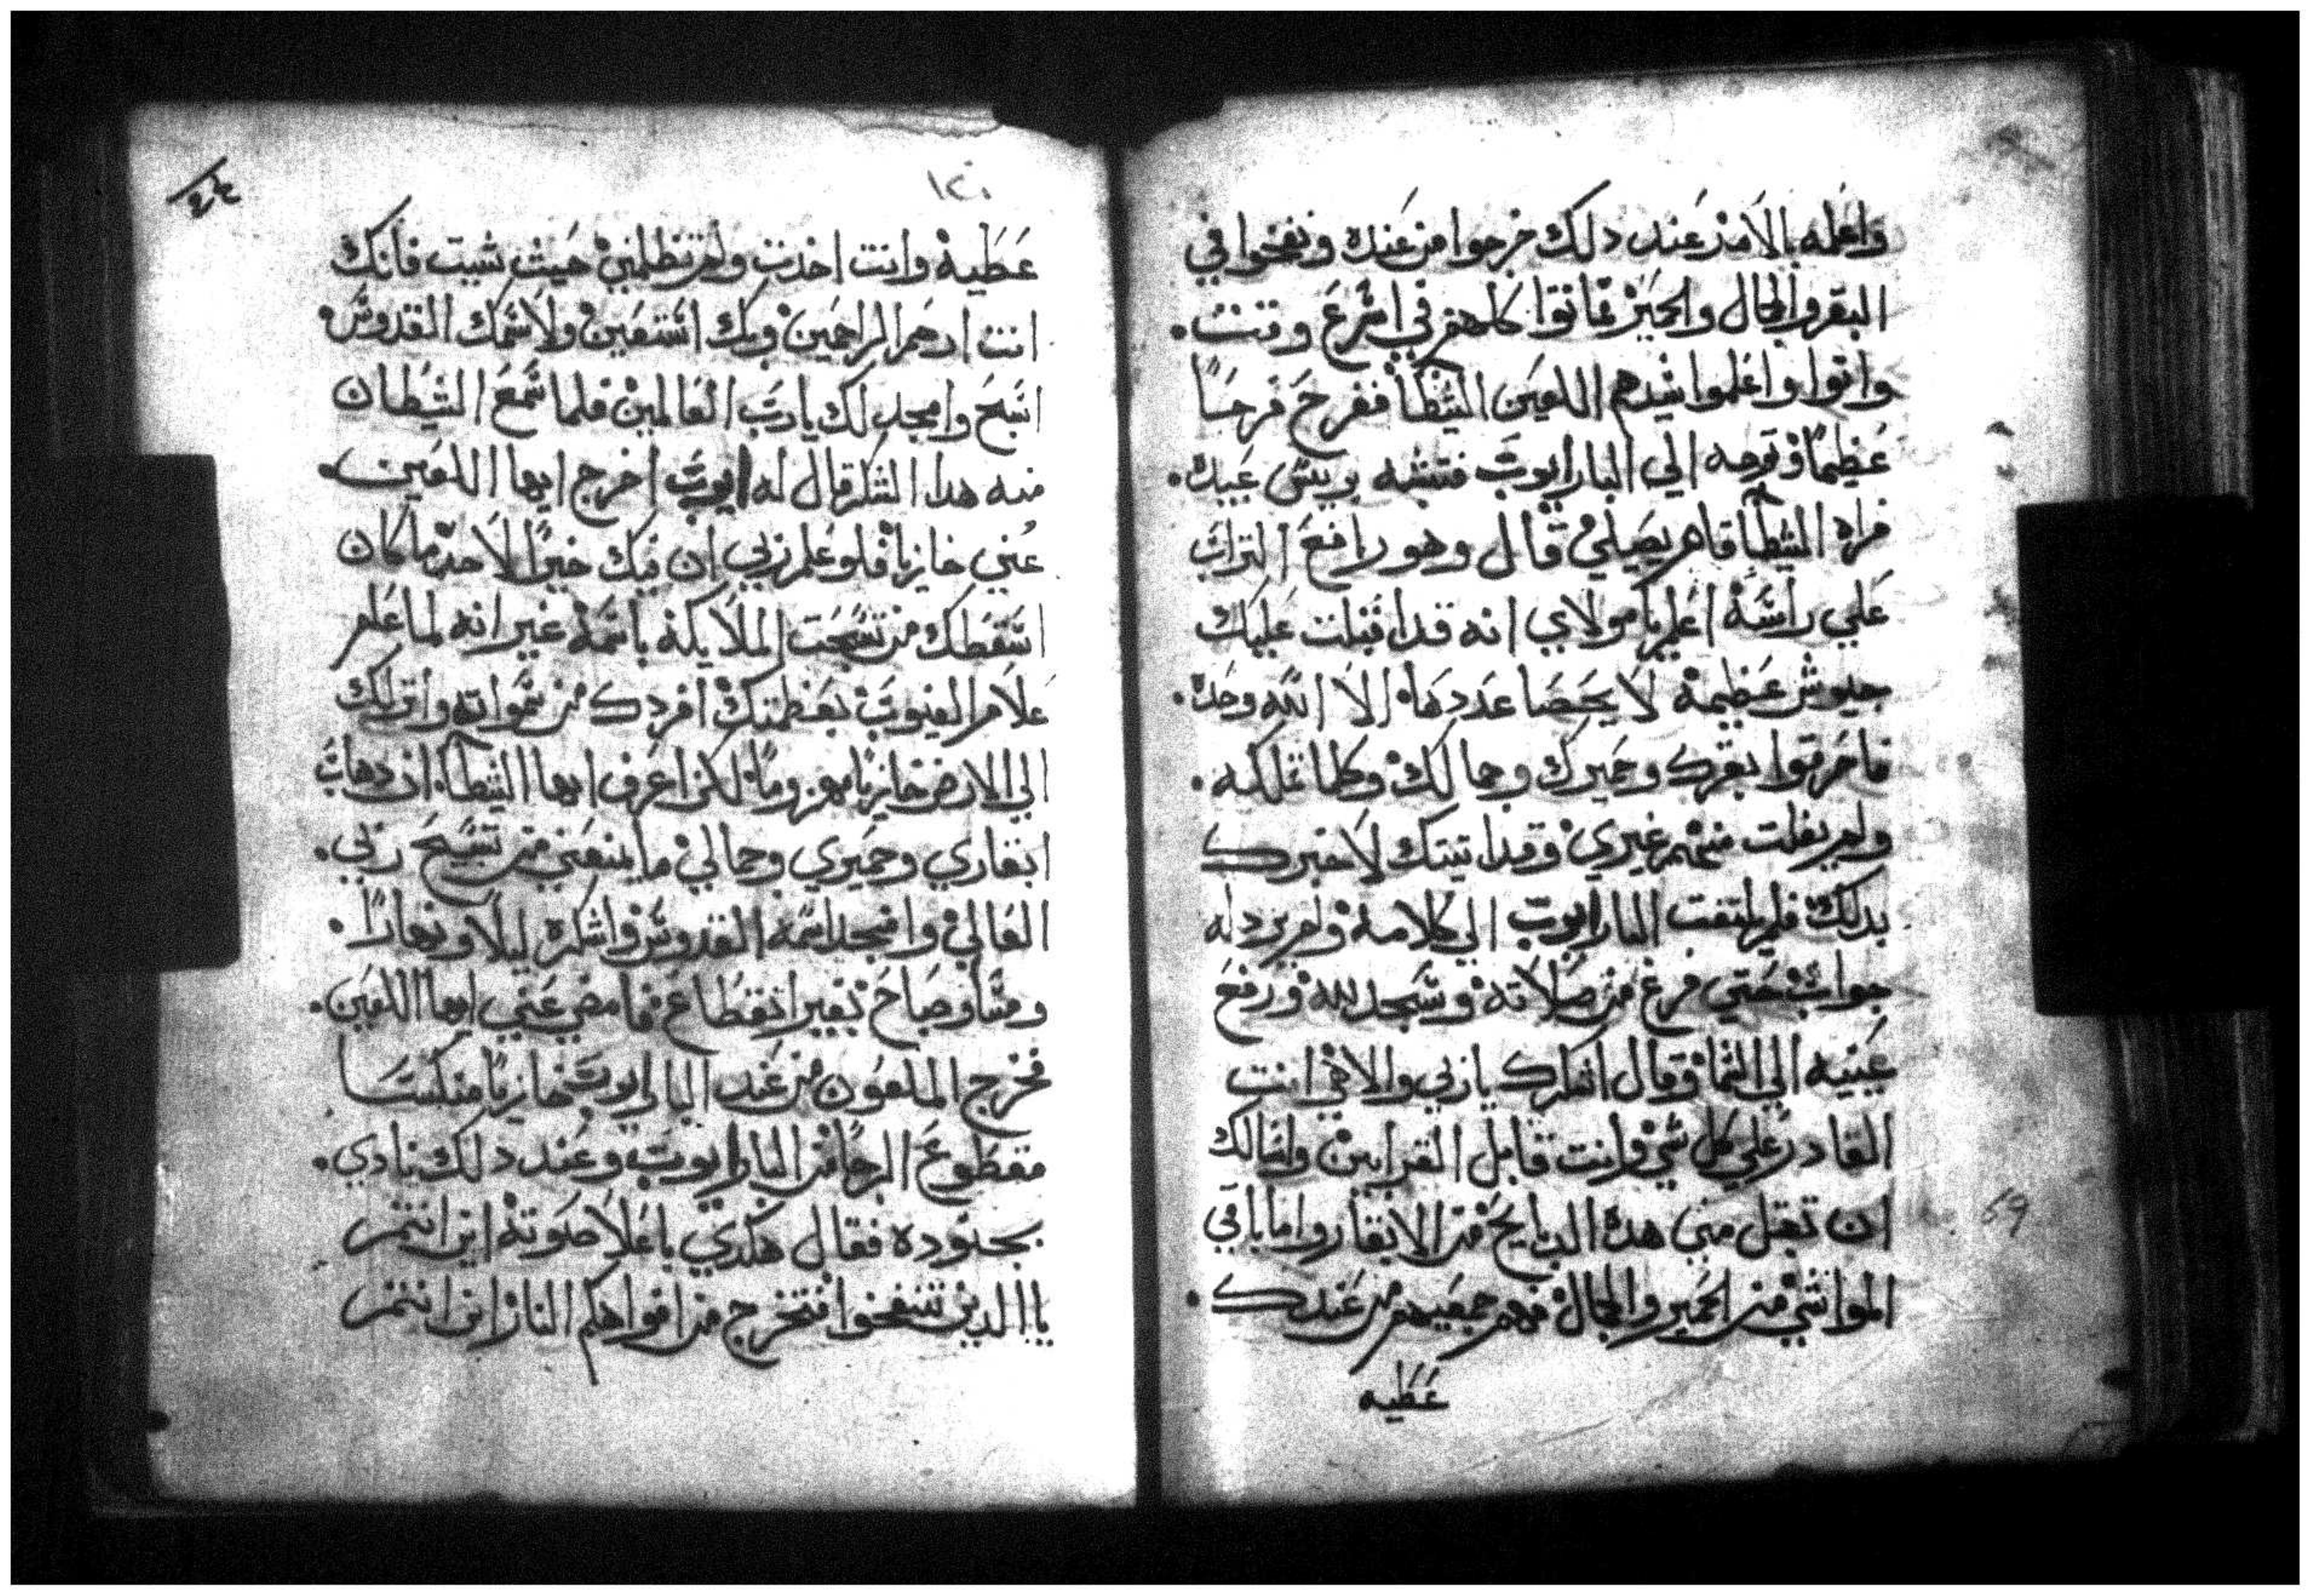 واعلمه بالامر عند دلك خرجوا من عنده ونفخوا في
البقر والجمال والحمير فماتوا كلهم في اسرع وقتت.
واتوا واعلموا سيدهم اللعين الشيطا ففرح فرحًا
عظيمًا وتوجه الي البار ايوب فتشبه بريس عبيده.
فراه الشيطا قايم يصلي قال وهو رافع التراب
علي راسه اعلم يا مولاي انه قد اقبلت عليك
جيوش عظيمة لا يحصا عددها الا الله وحده.
فاحرقوا بقرك وحميرك وجمالك وكلما تملكه.
ولم يفلت منهم غيري وقد اتيتك لاخبرك
بدلك فلم يلتفت البار ايوب الي كلامه ولم يرد له
جواب حتي فرغ من صلاته وسجد لله ورفع
عينيه الي السما وقال اشكرك يا ربي والاهي انت
القادر علي كل شي وانت قابل القرابين واسالك
ان تقبل مني هده الدبايح من الابقار واما باقي
المواشي من الحمير والجمال فهم جميعهم من عندك.
عطيه
١٢٠
عطية وانت اخدت ولم تظلمني حيث شيت فانك
انت ارحم الراحمين وبك استعين ولاسمك القدوس.
اسبح وامجد لك يا رب العالمين فلما سمع الشيطان
منه هدا الشكر قال له ايوب اخرج ايها اللعين.
عني خازيا فلو علم ربي ان فيك خيرًا لاحد ما كان
اسقطك من تسبحت الملايكة باسمه غير انه لما علم
علام الغيوب بعظمتك افردك من سمواته وانزلك
الي الارض خازيا مهزومًا لكن اعرف ايها الشيطا ان دهاب
ابقاري وحميري وجمالي ما يمنعني من تسبيح ربي.
العالي وامجد اسمه القدوس واشكره ليلا ونهارًا.
ومسا وصباح بغير انقطاع فامضي عني ايها اللعين.
فخرج الملعون من عند البار ايوب خازيا منكسا
مقطوع الرجا من البار ايوب وعند دلك ينادي.
بجنوده فقال هكدي باعلا صوته اين انتم
يا الدين تنفخوا فتخرج من افواهكم النار اين انتم
59